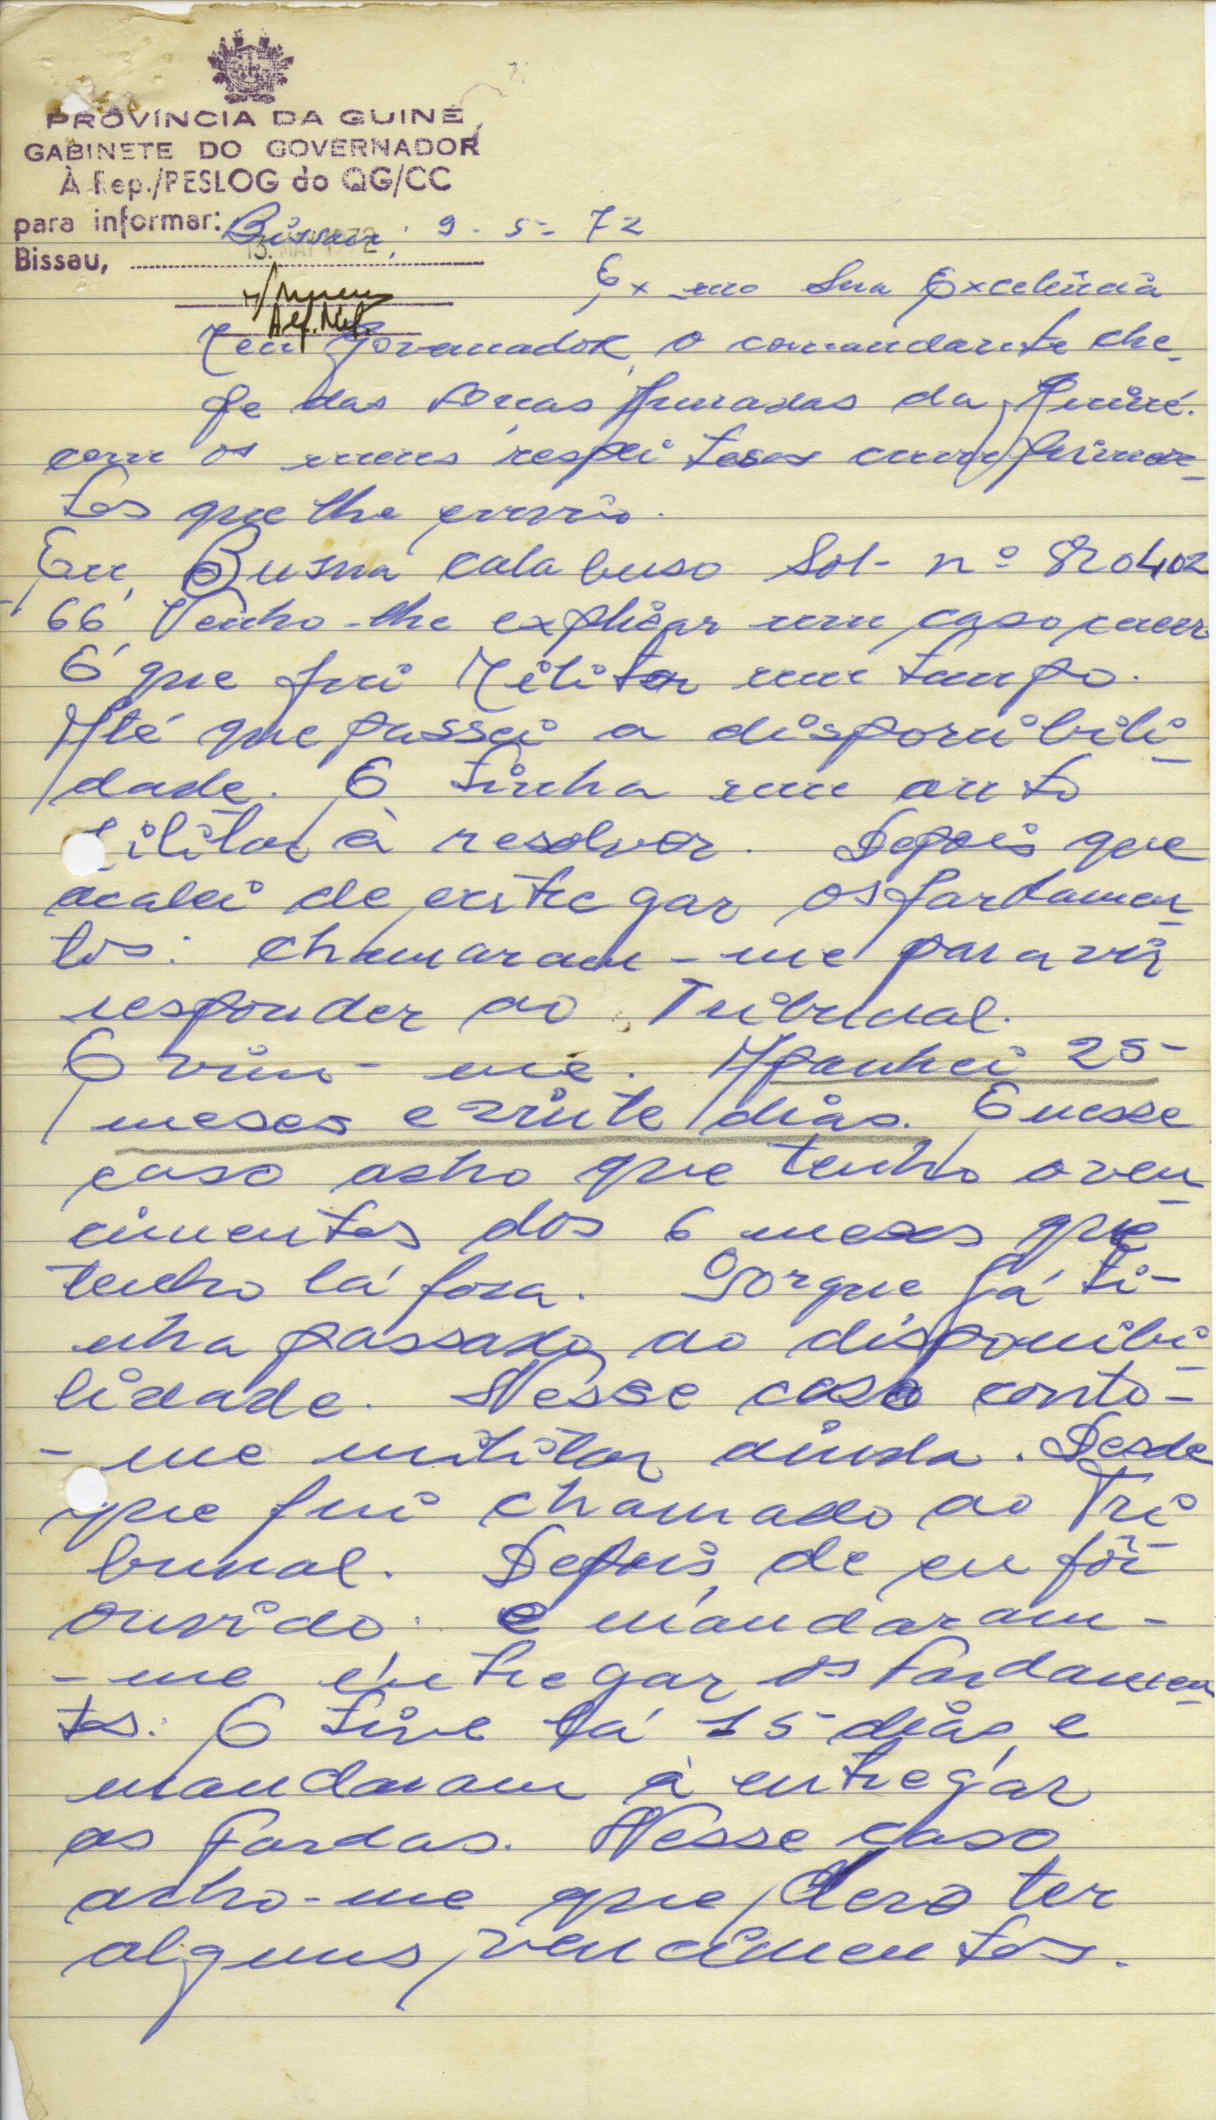 PROVÍNCIA DA GUINÉ
GABINETE DO GOVERNADOR
À Rep./PESLOG do QG/CC
para informar:
Bissau, 9-5-72
Bissau,
13. MAI 1972
Alf. Mil.
Ex mo Sua Excelência
Meu Governador, o comandante che-
fe das Forças Armadas da Guiné.
com os meus respeitosos cumprimen-
tos que lhe envio.
Eu, Busna calabuso Sol- nº 820402
66 Venho-lhe explicar um caso,
É que fui Militar um tempo.
Até que passei a disponibili-
dade. E tinha um auto
Militar à resolver. Depois que
acabei de entregar os fardamen-
tos: chamaram-me para vir
responder ao Tribunal.
E vim-me. Apanhei 25-
meses e vinte dias. E nesse
caso acho que tenho o ven-
cimentos dos 6 meses que
tenho lá fora. Porque já ti-
nha passado ao disponibi-
lidade. Nesse caso conto-
-me militar ainda. Desde
que fui chamado ao Tri
bunal. Depois de eu fôr
ouvido. e mandaram-
-me entregar os fardamen-
tos. E tive lá 15 dias e
mandaram à entregar
as fardas. Nesse caso
acho-me que devo ter
alguns vencimentos.